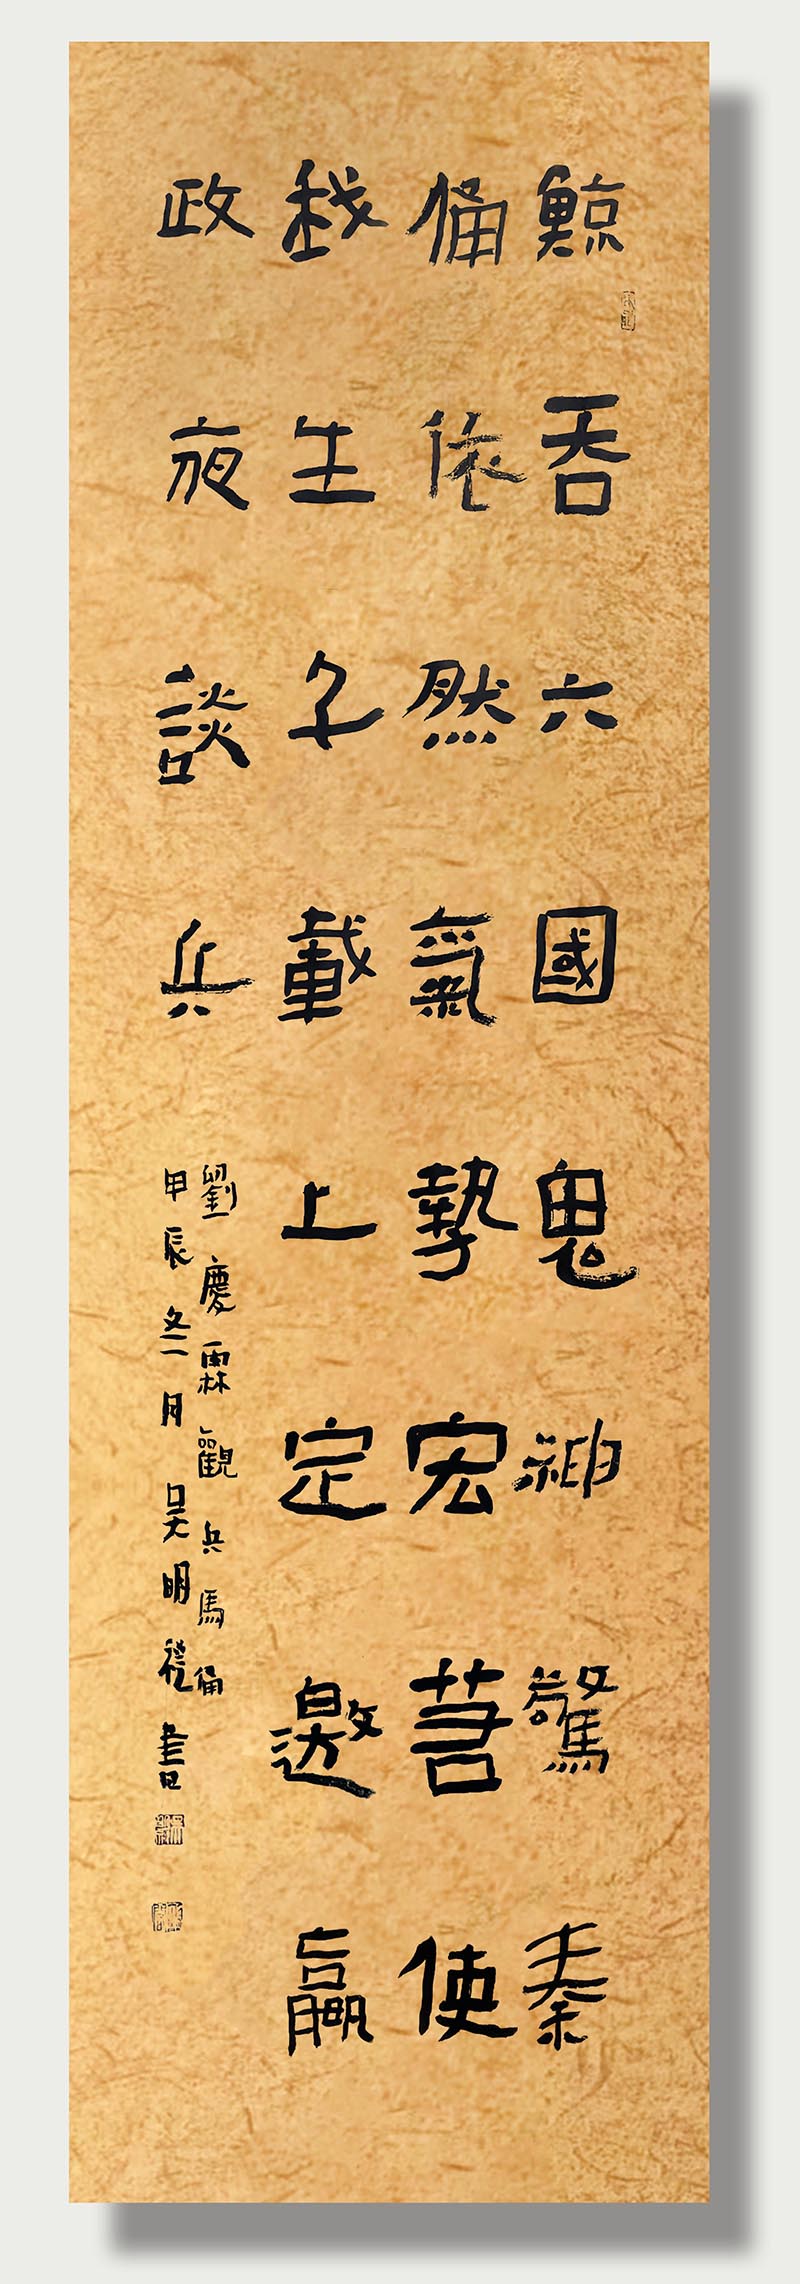 鯨吞六國鬼神驚秦
俑依然氣勢宏若使
我生千載上定邀嬴
政夜談兵
劉慶霖觀兵馬俑
甲辰冬月吳明禮書